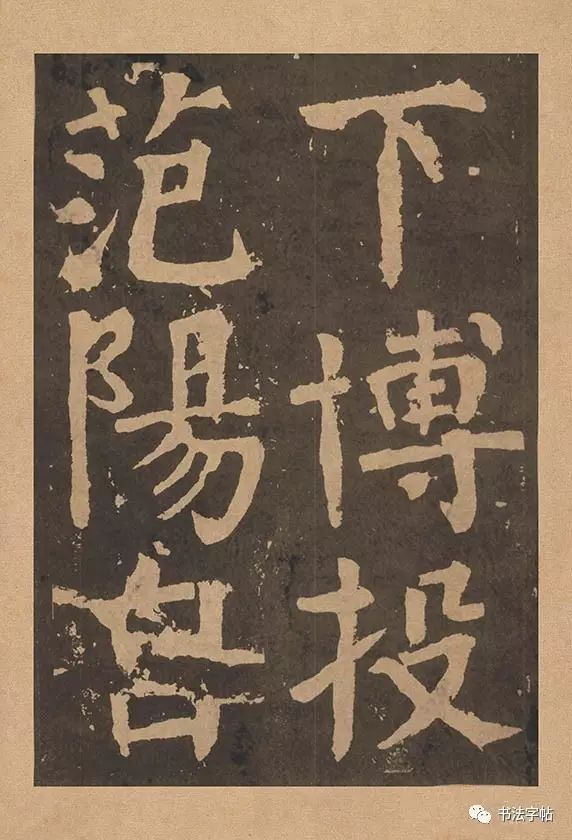 下博投
范陽
书法字帖